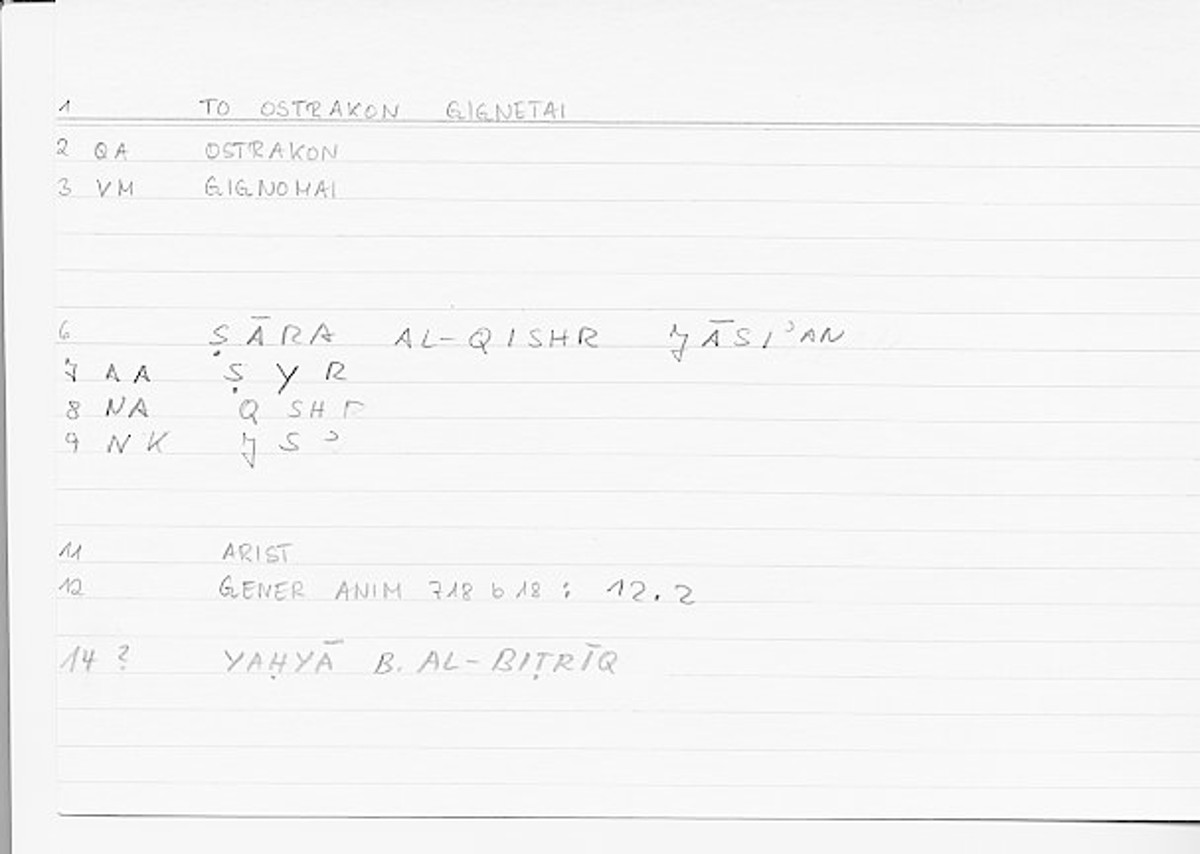 1 TO OSTRAKON GIGNETAI
2 QA OSTRAKON
3 VM GIGNOMAI
6 ṢĀRA AL-QISHR JĀSIʾAN
7 AA Ṣ Y R
8 NA Q SH R
9 NK J S ʾ
11 ARIST
12 GENER ANIM 718 b 18 : 12.2
14 ? YAḤYĀ B. AL-BIṬRĪQ